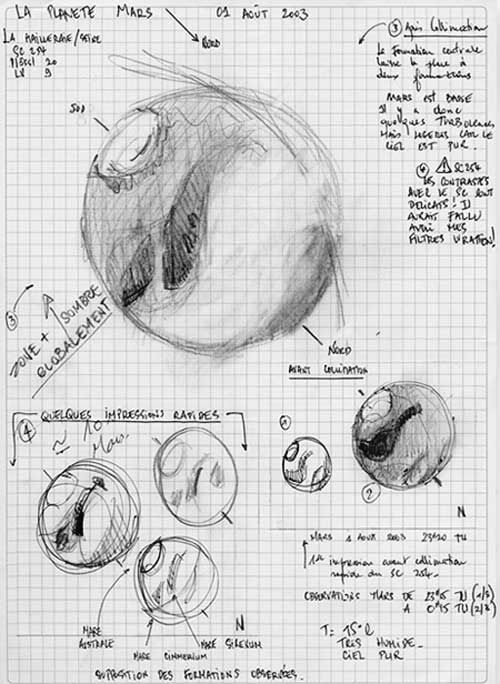 LA PLANETE MARS 01 AOÛT 2003
LA HAILLERAIE/SEINE
SC 254
20
9
NORD
SUD
③ Après Collimation
La formation centrale
laisse la place à
deux formations
MARS est BASSE
Il y a donc
quelques TURBULENCES
MAIS LEGERES CAR LE
CIEL EST PUR.
④ SC 254
LES CONTRASTES
AVEC LE SC SONT
DELICATS! IL
AURAIT FALLU
AVOIR MES
FILTRES WRATTEN!
③
ZONE + SOMBRE
GLOBALEMENT
NORD
AVANT COLLIMATION
④ QUELQUES IMPRESSIONS RAPIDES
① 
②
N
MARS 1 AOUT 2003 23H20 TU
1ère impression avant collimation
rapide du SC 254.
OBSERVATIONS MARS DE 23H15 TU (1/8)
A 0H15 TU (2/8)
T = 15°C
TRES HUMIDE.
CIEL PUR
N
MARE
AUSTRALE
MARE CIMMERIUM
MARE SIRENUM
SUPPOSITION DES FORMATIONS OBSERVEES.